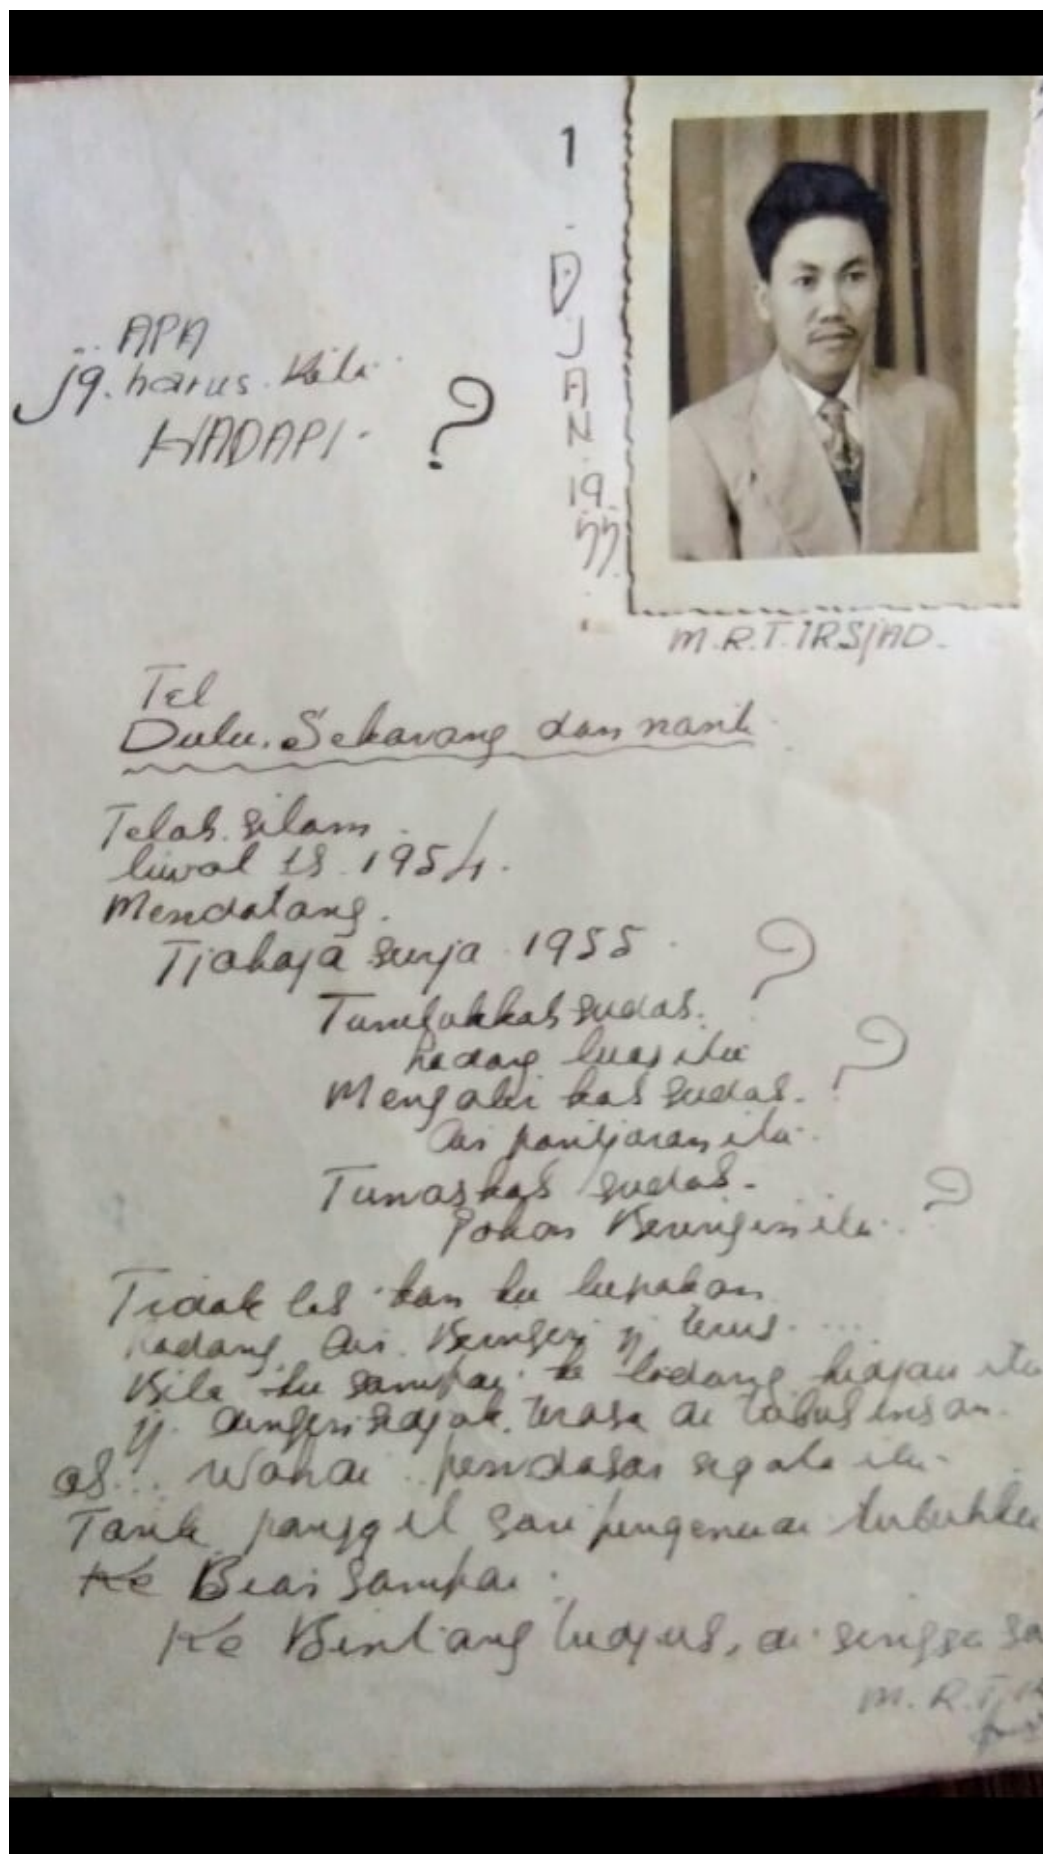 .. APA
jg. harus. Kita ..
HADAPI. ?
1 . DJAN. 19.55.
M.R.T. IRSJAD.
Tel
Dulu. Sekarang dan nanti.
Telah. silam.
liwat 1954.
Mendatang.
Tjahaja surja 1955. ?
Tumbuhkah sudah.
Padang luas itu ?
Mengalir kah sudah.
Air pantjaran itu.
Tunaskah sudah.
Pohon Beringin itu. ?
Tidak lah kan ku lupakan
Padang. Air. Beringin jj terus. ...
Bila ku sampai ke ladang hidjau itu
jj. dingin sedjuk. terasa di tubuh insan.
ah... wahai segala itu.
Tarik panggil sari pengenai tubuhku
Biar sampai.
Ke Bintang tudjuh. di
M. R. T.